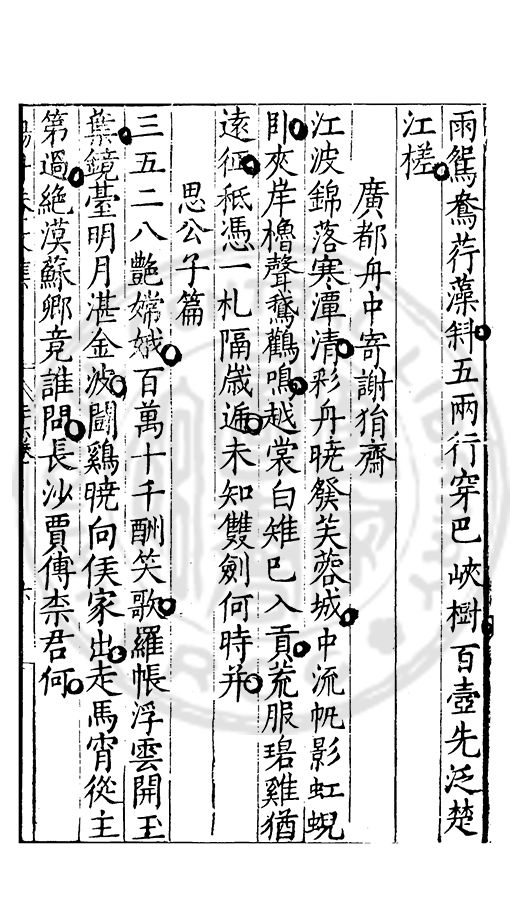 雨鴛鴦荇藻斜五兩行穿巴峽樹百壺先泛楚
江槎
廣都舟中寄謝狷齋
江波錦落寒潭清彩舟曉發芙蓉城中流帆影虹蜺
卧夾岸櫓聲鵞鸛鳴越裳白雉巴入貢荒服碧雞猶
遠征秪憑一札隔歳逓未知雙劍何時并
思公子篇
三五二八艶嫦娥百萬十千酬笑歌羅帳浮雲開玉
葉鏡䑓明月湛金波鬪鷄曉向侯家出走馬宵從主
第過絶漠蘇卿竟誰問長沙賈傅柰君何